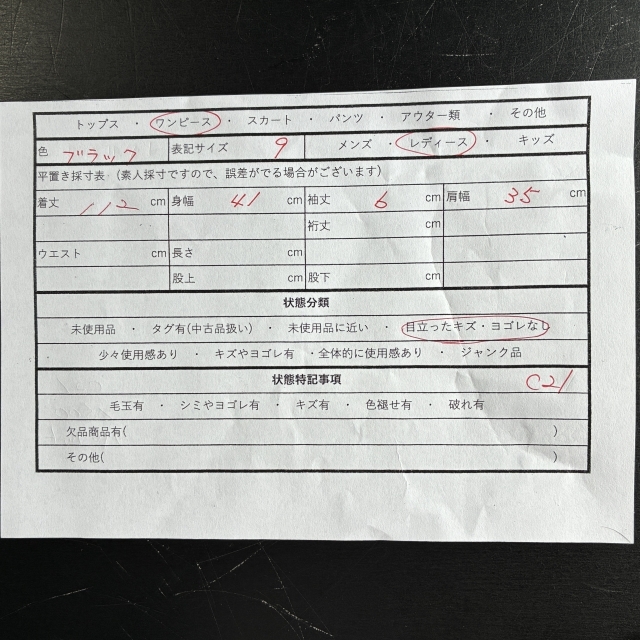 トップス ・ ワンピース ・ スカート ・ パンツ ・ アウター類 ・ その他
色 ブラック 表記サイズ 9 メンズ ・ レディース ・ キッズ
平置き採寸表 (素人採寸ですので、誤差がでる場合がございます)
着丈 112 cm 身幅 41 cm 袖丈 6 cm 肩幅 35 cm
裄丈 cm
ウエスト cm 長さ cm
股上 cm 股下 cm
状態分類
未使用品 ・ タグ有(中古品扱い) ・ 未使用品に近い ・ 目立ったキズ・ヨゴレなし
少々使用感あり ・ キズやヨゴレ有 ・全体的に使用感あり ・ ジャンク品
状態特記事項 C21
毛玉有 ・ シミやヨゴレ有 ・ キズ有 ・ 色褪せ有 ・ 破れ有
欠品商品有( )
その他( )